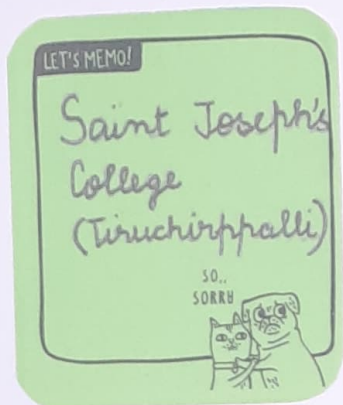 LET'S MEMO!
Saint Joseph's
College
(Tiruchirppalli)
SO..
SORRY